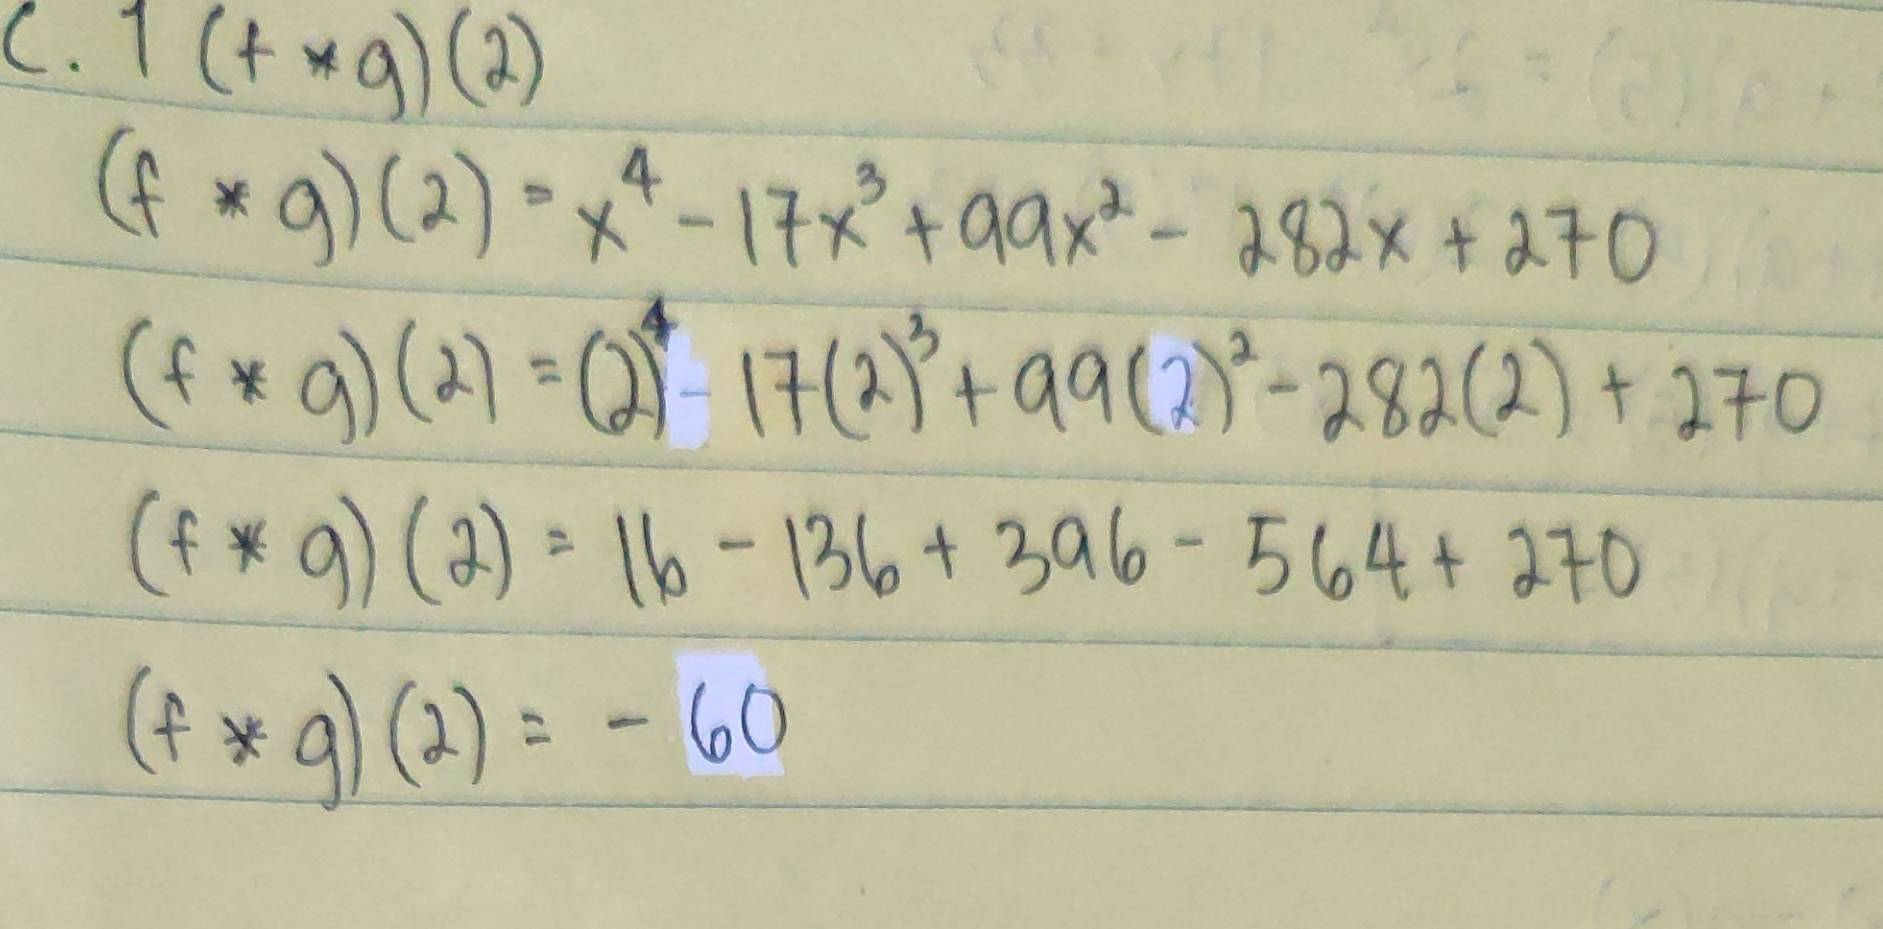 C. 1 (f * g)(2)
(f * g)(2) = x⁴ - 17x³ + 99x² - 282x + 270
(f * g)(2) = (2)⁴ - 17(2)³ + 99(2)² - 282(2) + 270
(f * g)(2) = 16 - 136 + 396 - 564 + 270
(f * g)(2) = - 60